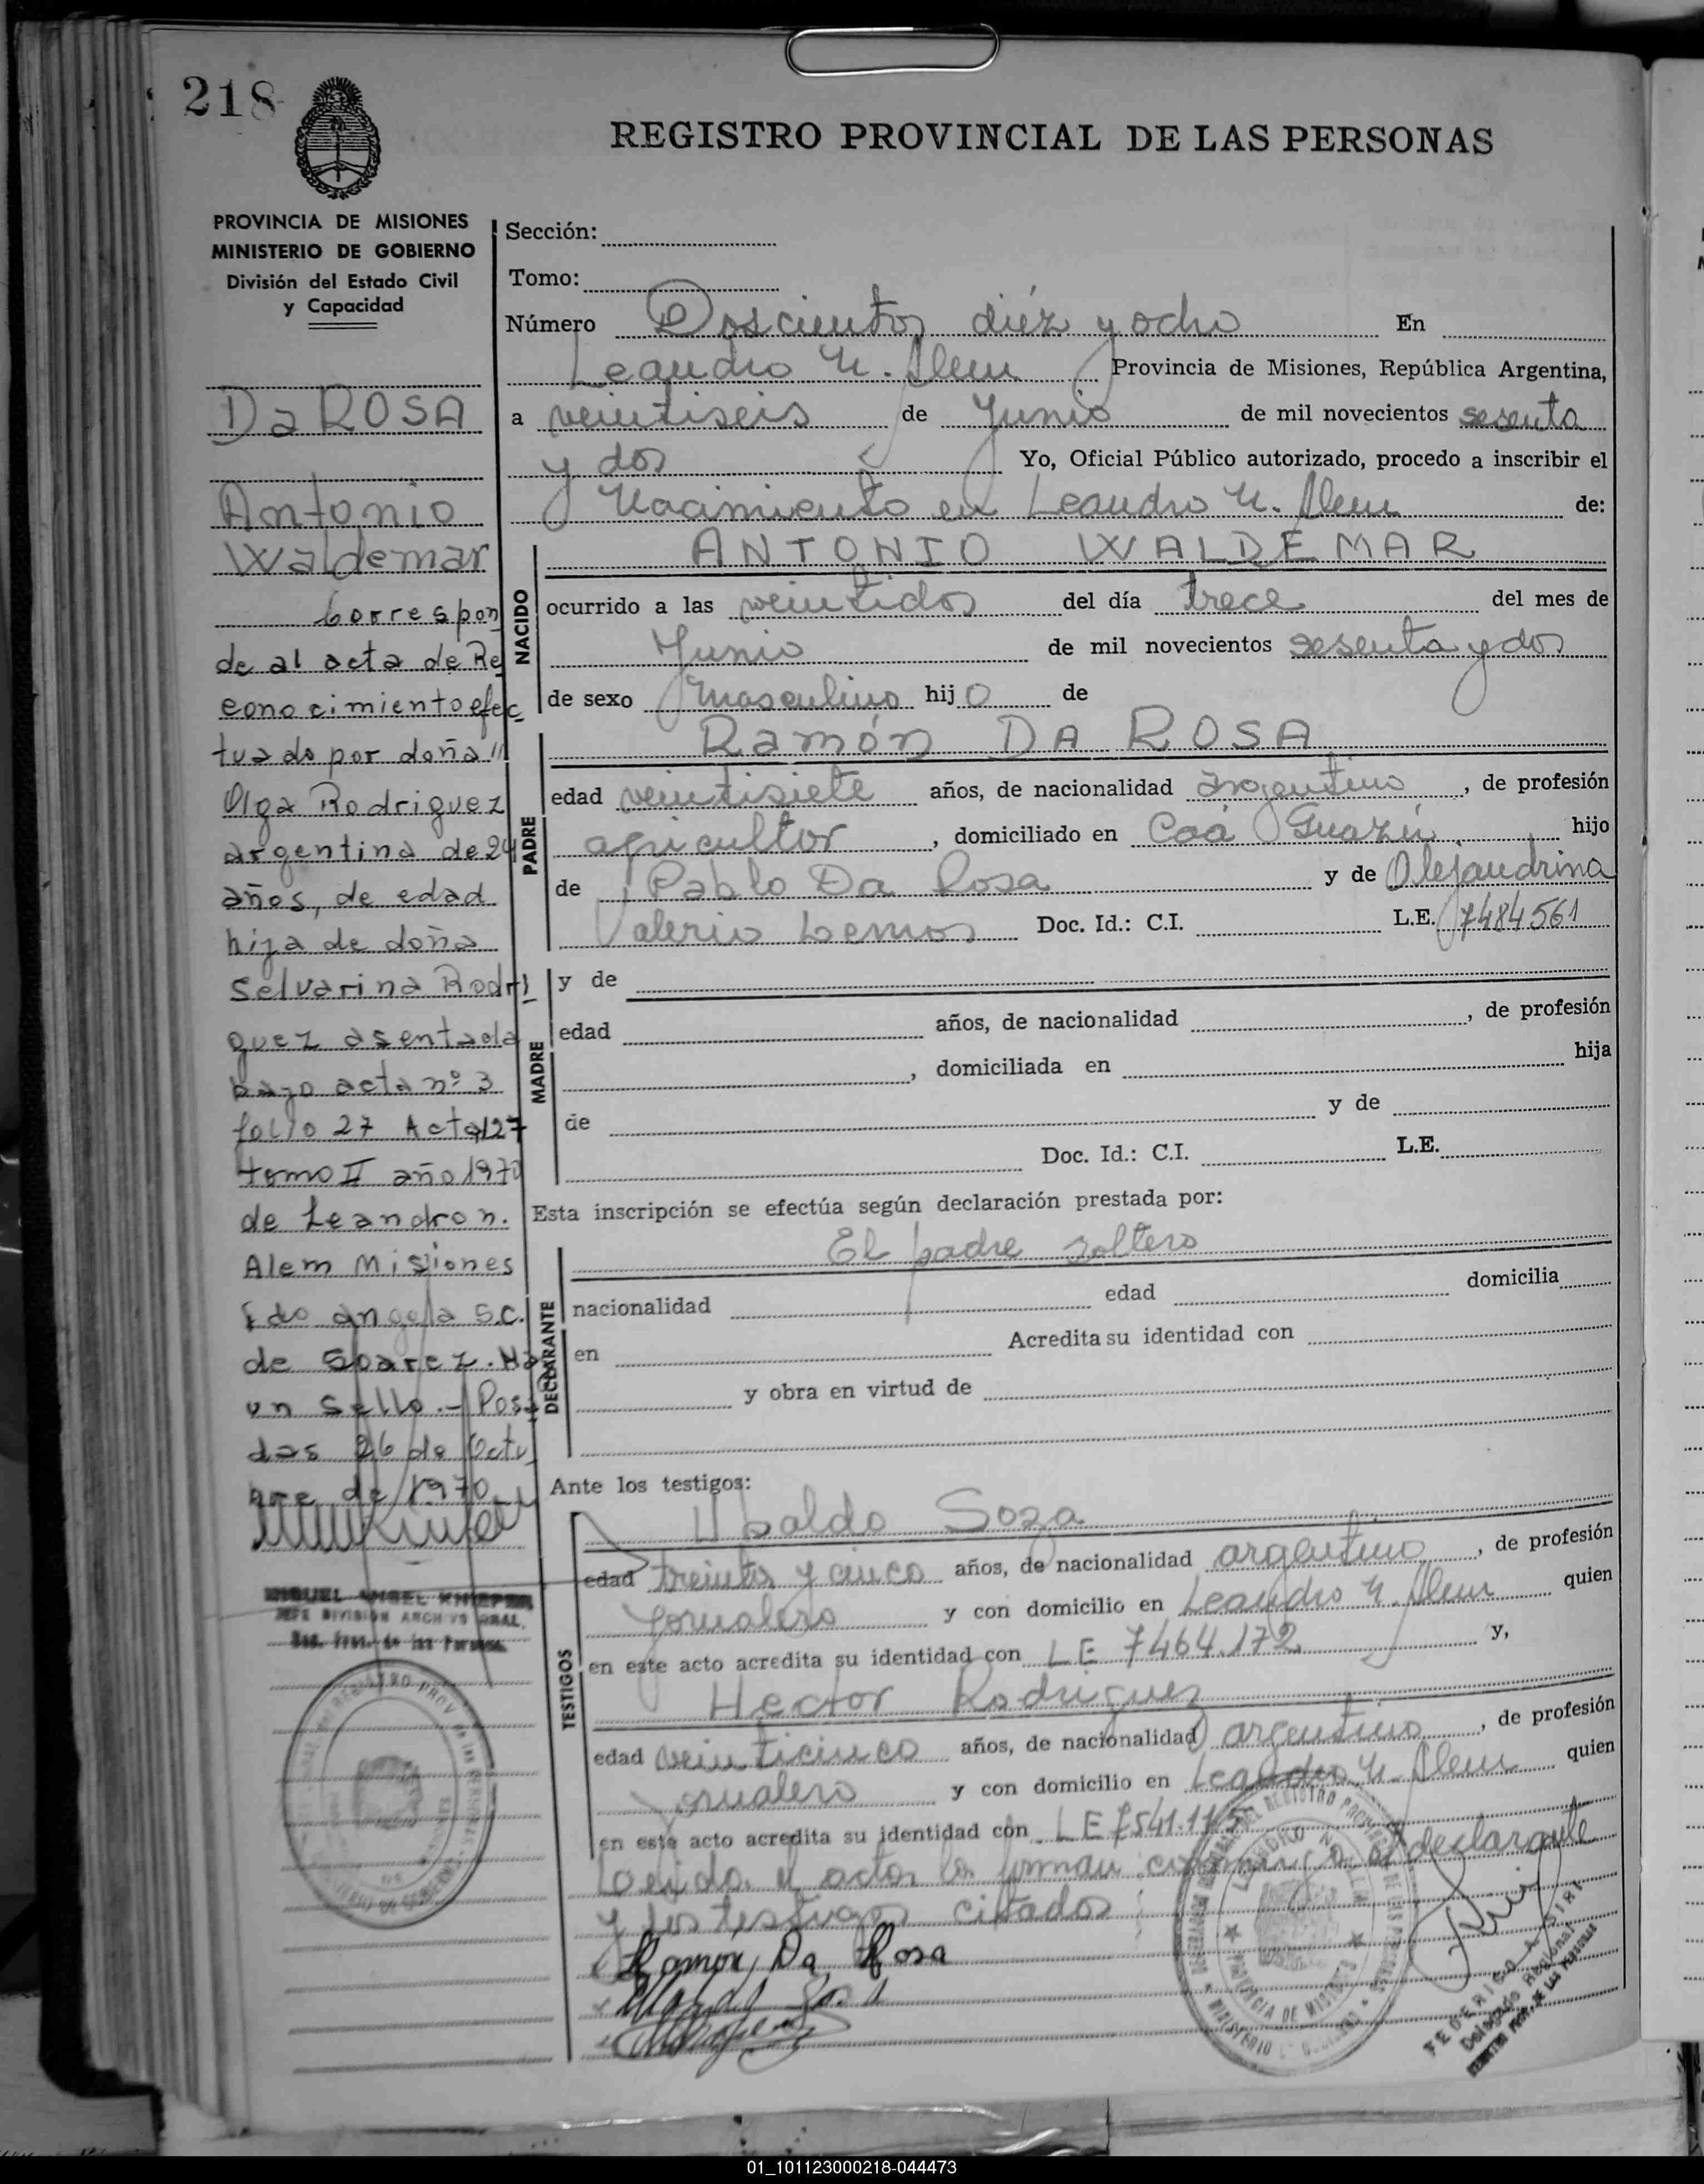 218
REGISTRO PROVINCIAL DE LAS PERSONAS
PROVINCIA DE MISIONES
MINISTERIO DE GOBIERNO
División del Estado Civil
y Capacidad
Da ROSA
Antonio
Waldemar
Correspon
de al acta de Re
conocimiento efec
tuado por doña "
Olga Rodriguez
argentina de 24
años, de edad
hija de doña
Selvarina Rodri
guez asentada
bajo acta nº 3
folio 27 Acta 127
tomo II año 1970
de Leandro n.
Alem Misiones
Fdo angela S.C.
de Soarez. Ha
un Sello.- Posa
das 26 de Octu
bre de 1970
MIGUEL ANGEL KNIEPER
JEFE DIVISION ARCHIVO GRAL.
Reg. Prov. de las Personas
Sección:
Tomo:
Número Doscientos diéz y ocho En
Leandro N. Alem Provincia de Misiones, República Argentina,
a veintiseis de Junio de mil novecientos sesenta
y dos Yo, Oficial Público autorizado, procedo a inscribir el
Nacimiento en Leandro N. Alem de:
NACIDO
ANTONIO WALDEMAR
ocurrido a las veintidos del día trece del mes de
Junio de mil novecientos sesenta y dos
de sexo masculino hijo de
PADRE
Ramón DA ROSA
edad veintisiete años, de nacionalidad argentino, de profesión
agricultor, domiciliado en Caá Guazú hijo
de Pablo Da Rosa y de Alejandrina
Valeria Lemos Doc. Id.: C.I. L.E. 7484561
MADRE
y de
edad años, de nacionalidad , de profesión
, domiciliada en hija
de y de
Doc. Id.: C.I. L.E.
Esta inscripción se efectúa según declaración prestada por:
DECLARANTE
El padre soltero
nacionalidad edad domicilia
en Acredita su identidad con
y obra en virtud de
Ante los testigos:
TESTIGOS
Ubaldo Soza
edad treinta y cinco años, de nacionalidad argentino, de profesión
Jornalero y con domicilio en Leandro N. Alem quien
en este acto acredita su identidad con LE 7464.172 y,
Hector Rodriguez
edad veinticinco años, de nacionalidad argentino, de profesión
Jornalero y con domicilio en Leandro N. Alem quien
en este acto acredita su identidad con LE 7541.115
Leida el acta, la firman conmigo el declarante
y los testigos citados
Ramon Da Rosa
LEANDRO N. ALEM
PROVINCIA DE MISIONES
FEDERICO A. SIRI
Delegado Regional
01_101123000218-044473